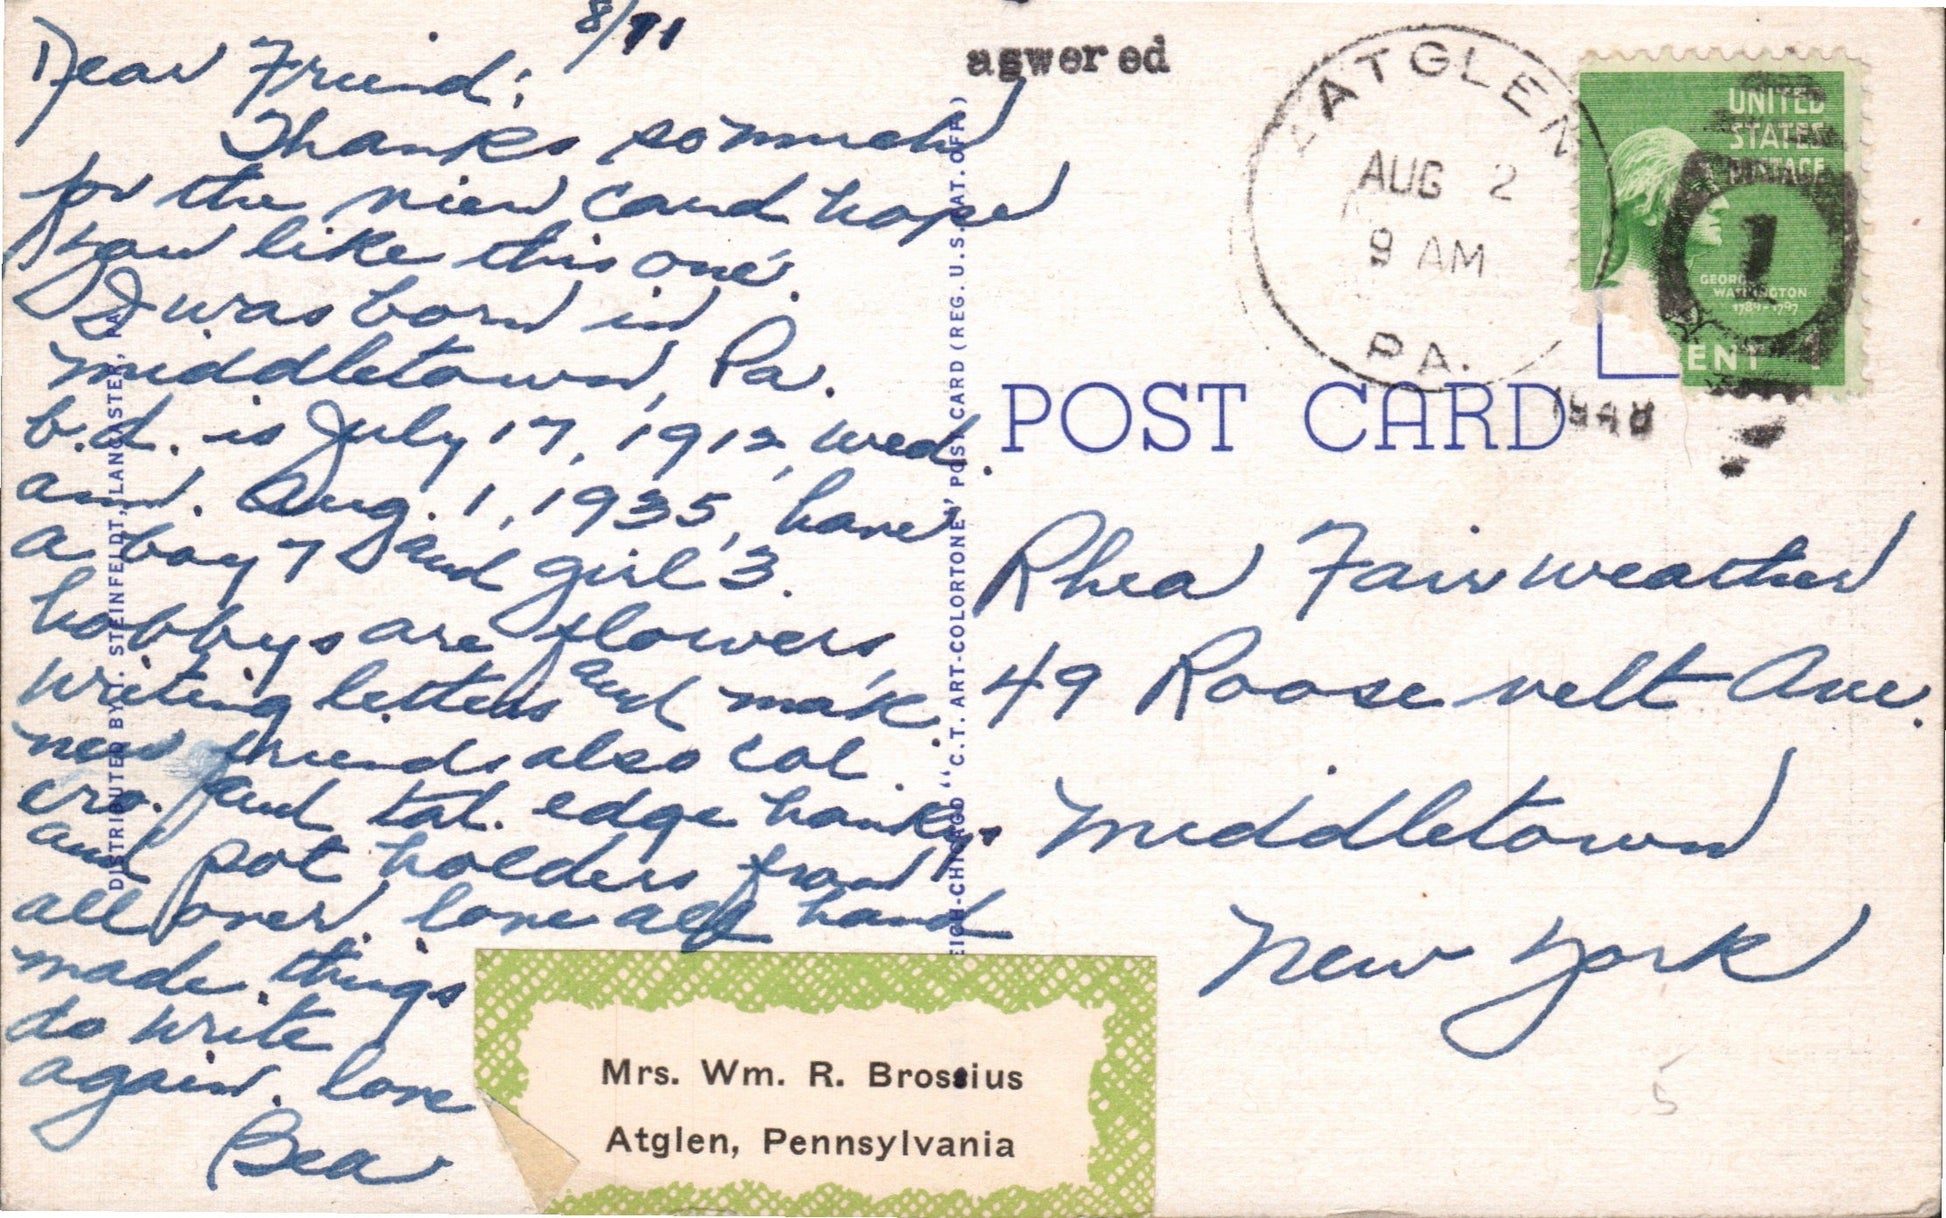 8/11
Dear Friend;
Thanks so much
for the view card hope
you like this one.
I was born in
Middletown, Pa.
b.d. is July 17, 1912, wed.
ann. Aug. 1, 1935, have
a boy 7 and girl 3.
hobbys are flowers,
writing letters and mak.
new friends also col.
cro. and tat. edge hankys
and pot holders from
all over, love all hand
made things
do write
again. love
Bea
DISTRIBUTED BY I. STEINFELDT, LANCASTER, PA.
"C.T. ART-COLORTONE" POST CARD (REG. U.S. PAT. OFF.)
aswered
ATGLEN
AUG 2
9 AM
PA.
1948
UNITED
STATES
POSTAGE
1
GEORGE
WASHINGTON
1789-1797
ENT 1
POST CARD
Rhea Fairweather
49 Roosevelt Ave.
Middletown
New York
5
Mrs. Wm. R. Brossius
Atglen, Pennsylvania